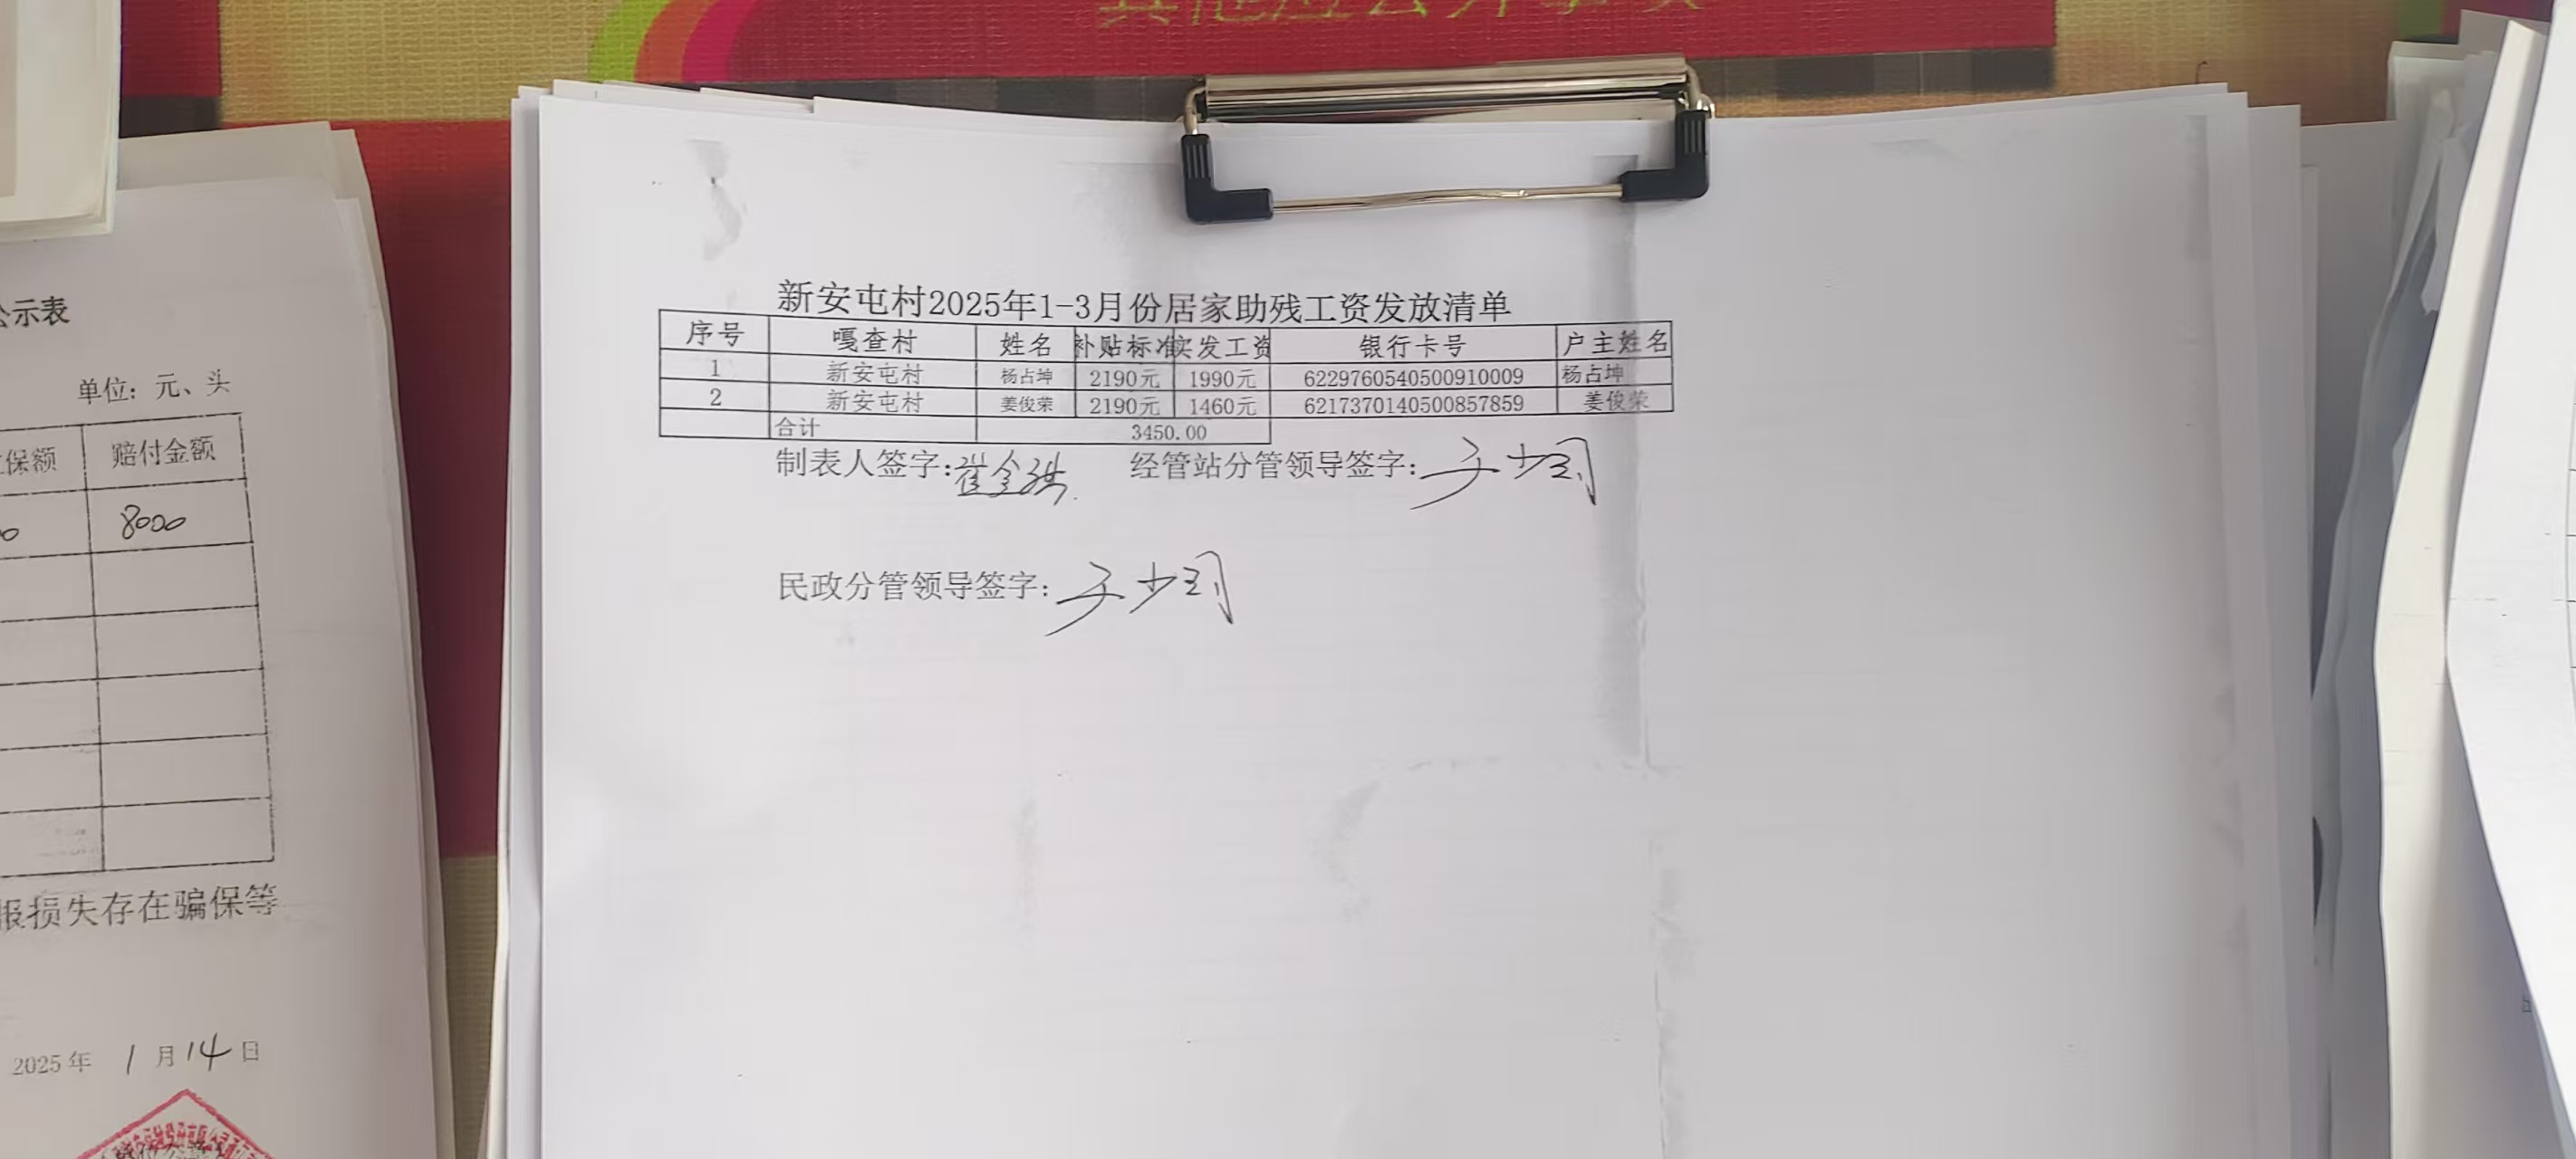 其他应公开事项
公示表
单位：元、头
保额 赔付金额
0 8000
报损失存在骗保等
2025年 1月14日
新安屯村2025年1-3月份居家助残工资发放清单
序号 嘎查村 姓名 补贴标准 实发工资 银行卡号 户主姓名
1 新安屯村 杨占坤 2190元 1990元 6229760540500910009 杨占坤
2 新安屯村 姜俊荣 2190元 1460元 6217370140500857859 姜俊荣
合计 3450.00
制表人签字： 经管站分管领导签字：
民政分管领导签字：